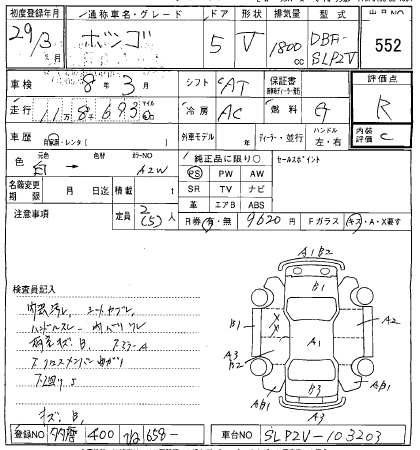 初度登録年月 通称車名・グレード ドア 形状 排気量 型式 出品NO
29/3月 ボンゴ 5 V 1800cc DBA-SLP2V 552
車検 8年3月 シフト CAT 保証書 評価点
走行 11万8千693 マイル km 冷房 AC 燃料 G R
車歴 自家用・レンタ( ) 外車モデル 年 ディーラー・並行 ハンドル 左・右 内装評価 C
色 元色 白 色替 カラーNO A2W 純正品に限り○ セールスポイント
名義変更期限 月 日迄 積載 t PS PW AW
SR TV ナビ
革 エアB ABS
注意事項 定員 2(5)人 R券 有・無 9620円 Fガラス キズ・A・X要す
A1 B2
検査員記入 B1
内装汚れ、シートヤブレ
ハンドルスレ 内バリワレ
B1 A2
A1
A3
B2
下廻りS
AB1 AB1
B3
キズ、B、 A3
登録NO 多摩 400 て/な 658- 車台NO SLP2V-103203